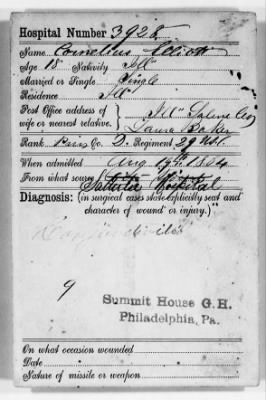 Hospital Number 3928
Name Cornelius Elliott
Age 18 Nativity Ill
Married or Single Single
Residence Ill
Post Office address of Ill Saline Co
wife or nearest relative. Laura Baker
Rank Priv Co. D. Regiment 29 Vol.
When admitted Aug 19th 1864
From what source Satterlee Hospital
Diagnosis: (in surgical cases state explicitly seat and
character of wound or injury.)
9
Summit House G. H.
Philadelphia, Pa.
On what occasion wounded
Date
Nature of missile or weapon